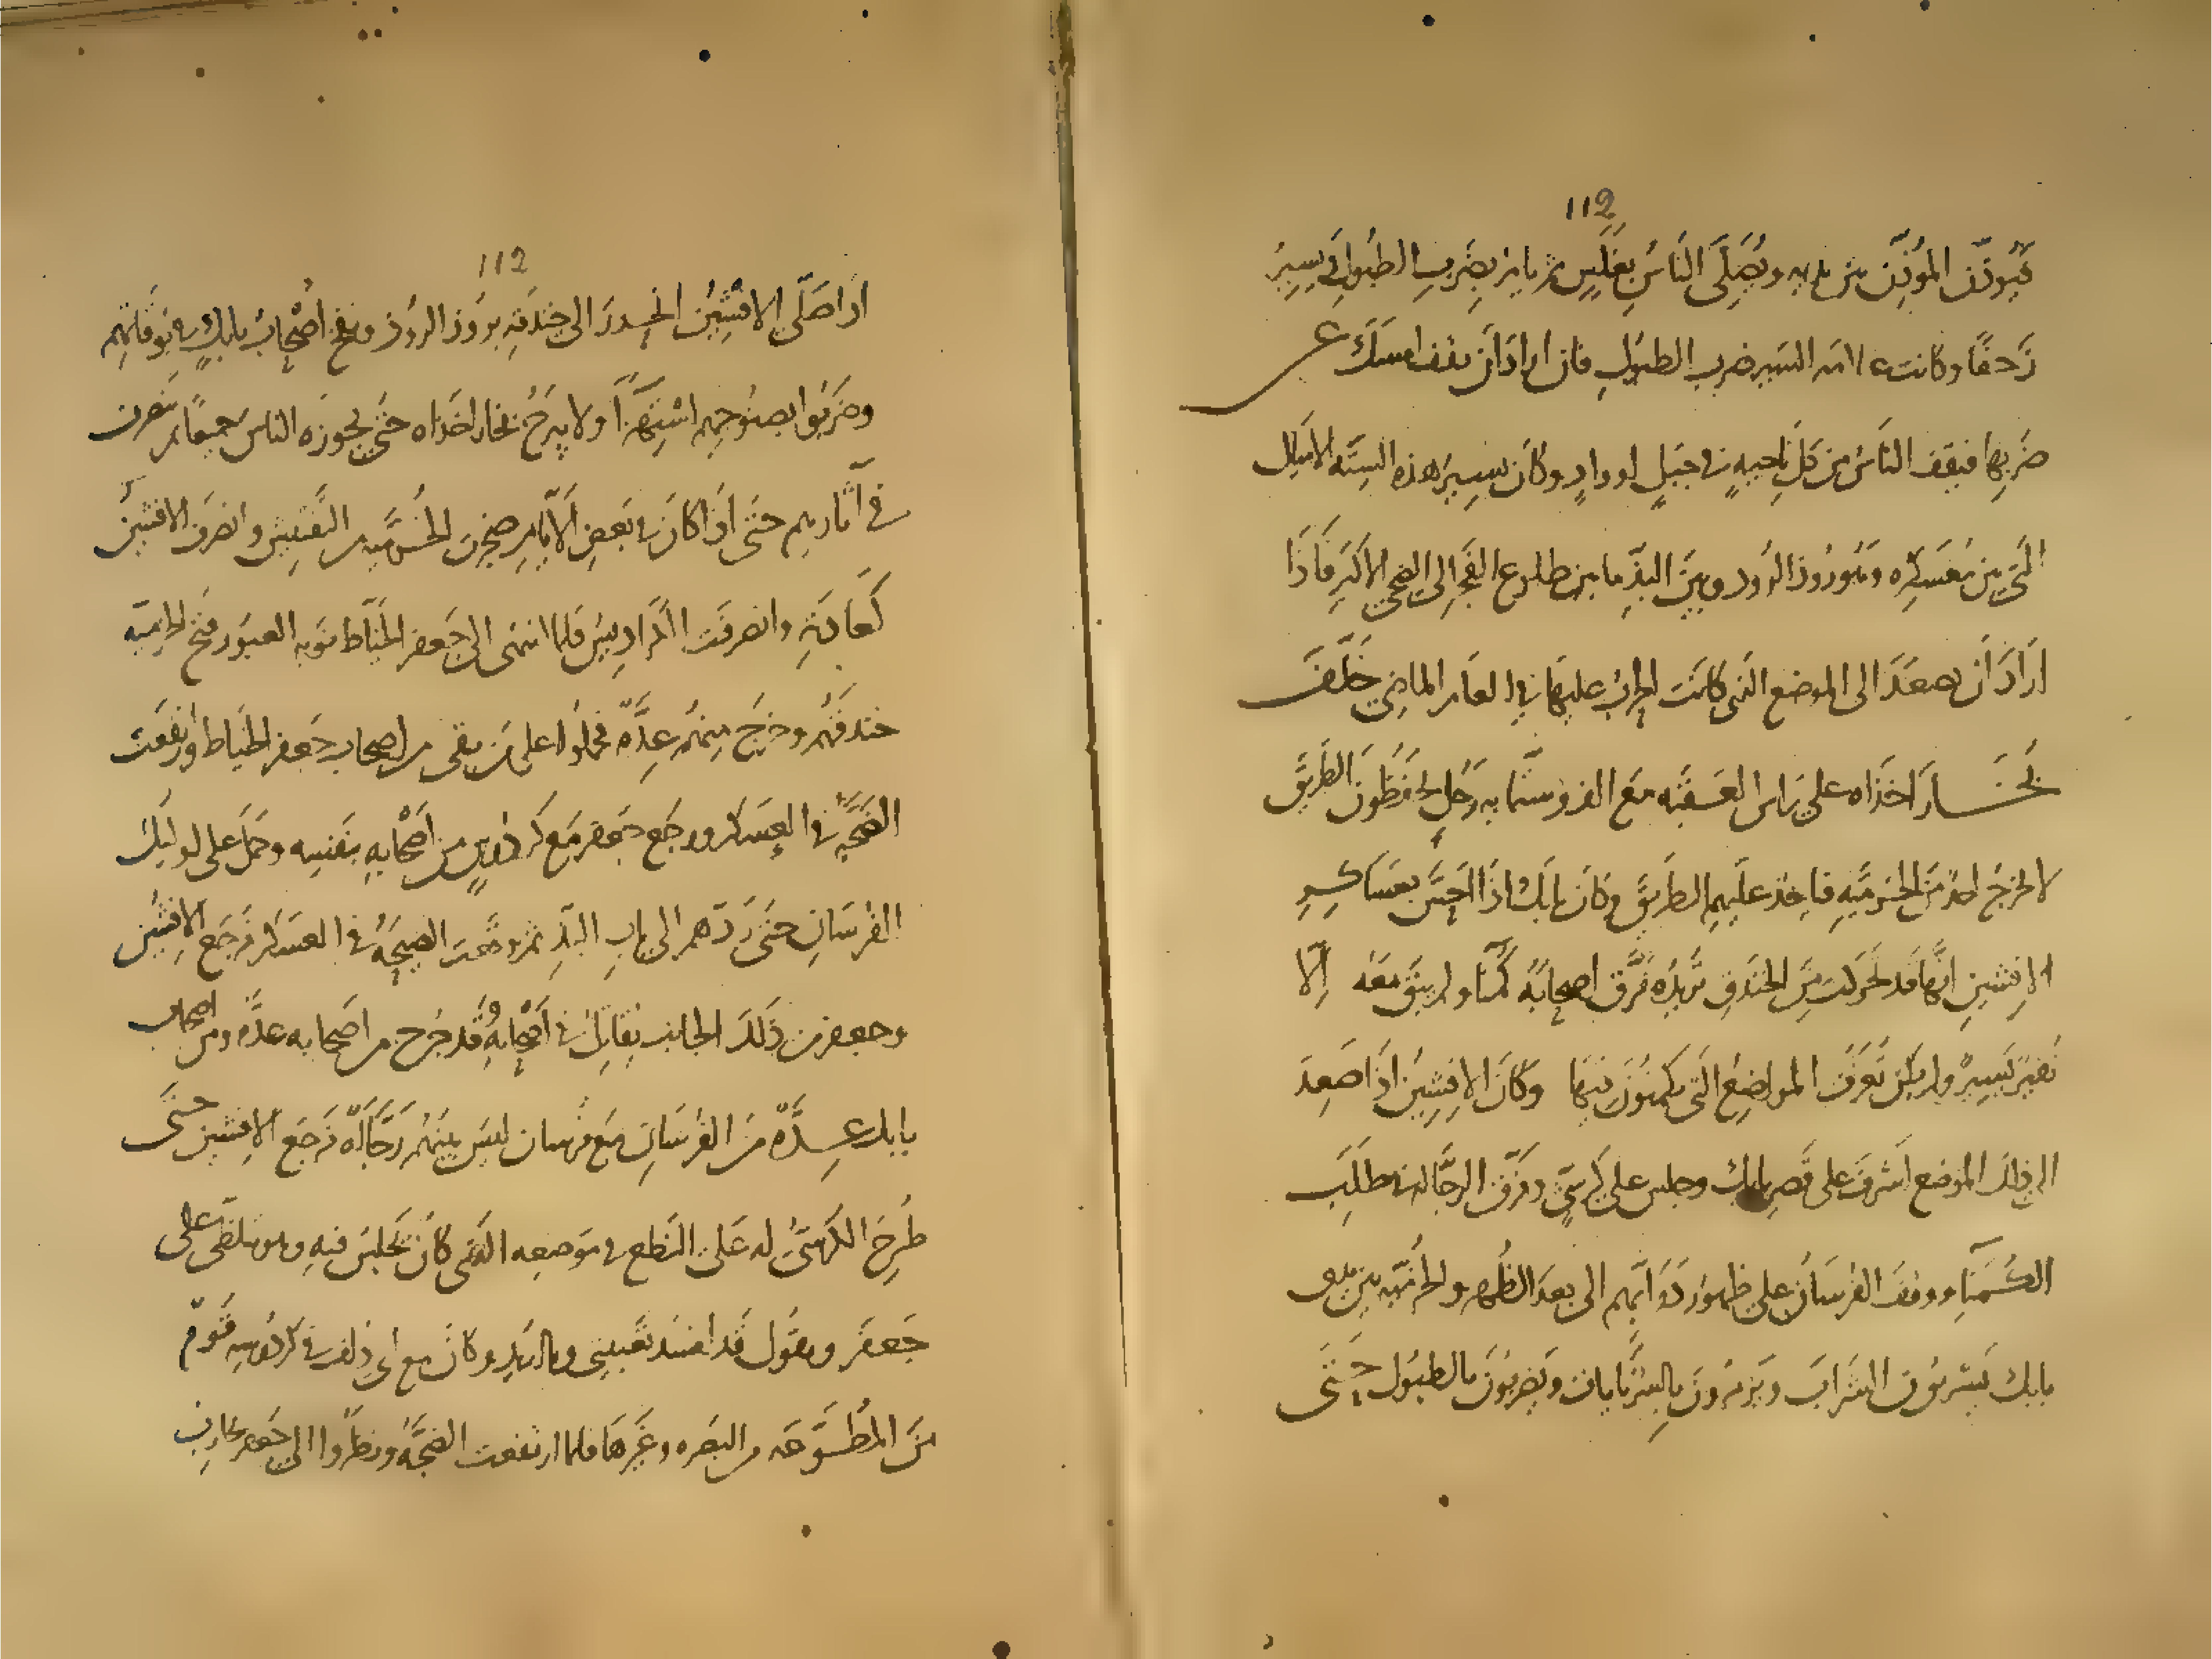 112
فيؤذن المؤذن بين يديه ويصلي الناس بغلس ثم يامر بضرب الطبول في يسير
زحفا وكانت علامة السير ضرب الطبول فان اراد ان يقف امسك عن
ضربها فيقف الناس من كل ناحية في جبل او واد وكان يسير هذه الستة الاميال
التي بين معسكره وهو روذ الروذ وبين البذ ما بين طلوع الفجر الى الضحى الاكبر فاذا
اراد ان يصعد الى الموضع التي كانت الحرب عليها في العام الماضي خلف
بخار اخذاه على راس العقبة مع الف فارس وستمايه رجل يحفظون الطريق
لا يخرج احد من الخرمية فياخذ عليهم الطريق وكان بابك اذا احس بعساكر
الافشين انها قد تحركت من الخندق تريده فرق اصحابه كمنا ولم يبق معه الا
نفير يسير ولم يكن تعرف المواضع التي يكمنون فيها وكان الافشين اذا صعد
الى ذلك الموضع اشرف على قصر بابك وجلس على كرسي وفرق الرجالة في طلب
الكمناء ووقف الفرسان على ظهور دوابهم الى بعد الظهر والخرمية بين يدي
بابك يشربون الشراب ويزمرون بالسرنايات ويضربون بالطبول حتى
112
اذا صلى الافشين انحدر الى خندقه بروذ الروذ ونفخ اصحاب بابك في بوقاتهم
وضربوا بصنوجهم استهزاء ولا يبرح بخار اخذاه حتى يجوزه الناس جميعا ثم ينصرف
في آثارهم حتى اذا كان في بعض الايام ضجرت الخرمية من التفتيش وانصرف الافشين
كعادته وانصرفت الكراديس فلما انتهى الى جعفر الخياط نوبة العبور فتح الخرمية
خندقهم وخرج منهم عدة فحملوا على من بقي من اصحاب جعفر الخياط وارتفعت
الضجة في العسكر ورجع جعفر مع كردوس من اصحابه بنفسه وحمل على اوليك
الفرسان حتى ردهم الى باب البذ ثم وقعت الضجة في العسكر فرجع الافشين
وجعفر من ذلك الجانب يقاتل في اصحابه وقد جرح من اصحابه عدة ومن اصحاب
بابك عدة من الفرسان مع فرسان ليس بينهم رجالة فرجع الافشين حتى
طرح الكرسي له على النطع في موضعه الذي كان يجلس فيه وهو يتلظى على
جعفر ويقول قد افسد تعبيتي وما اريد وكان مع ابي دلف في كردوسه قوم
من المطوعه من البصره وغيرها فلما ارتفعت الضجة ونظروا الى جعفر يحارب